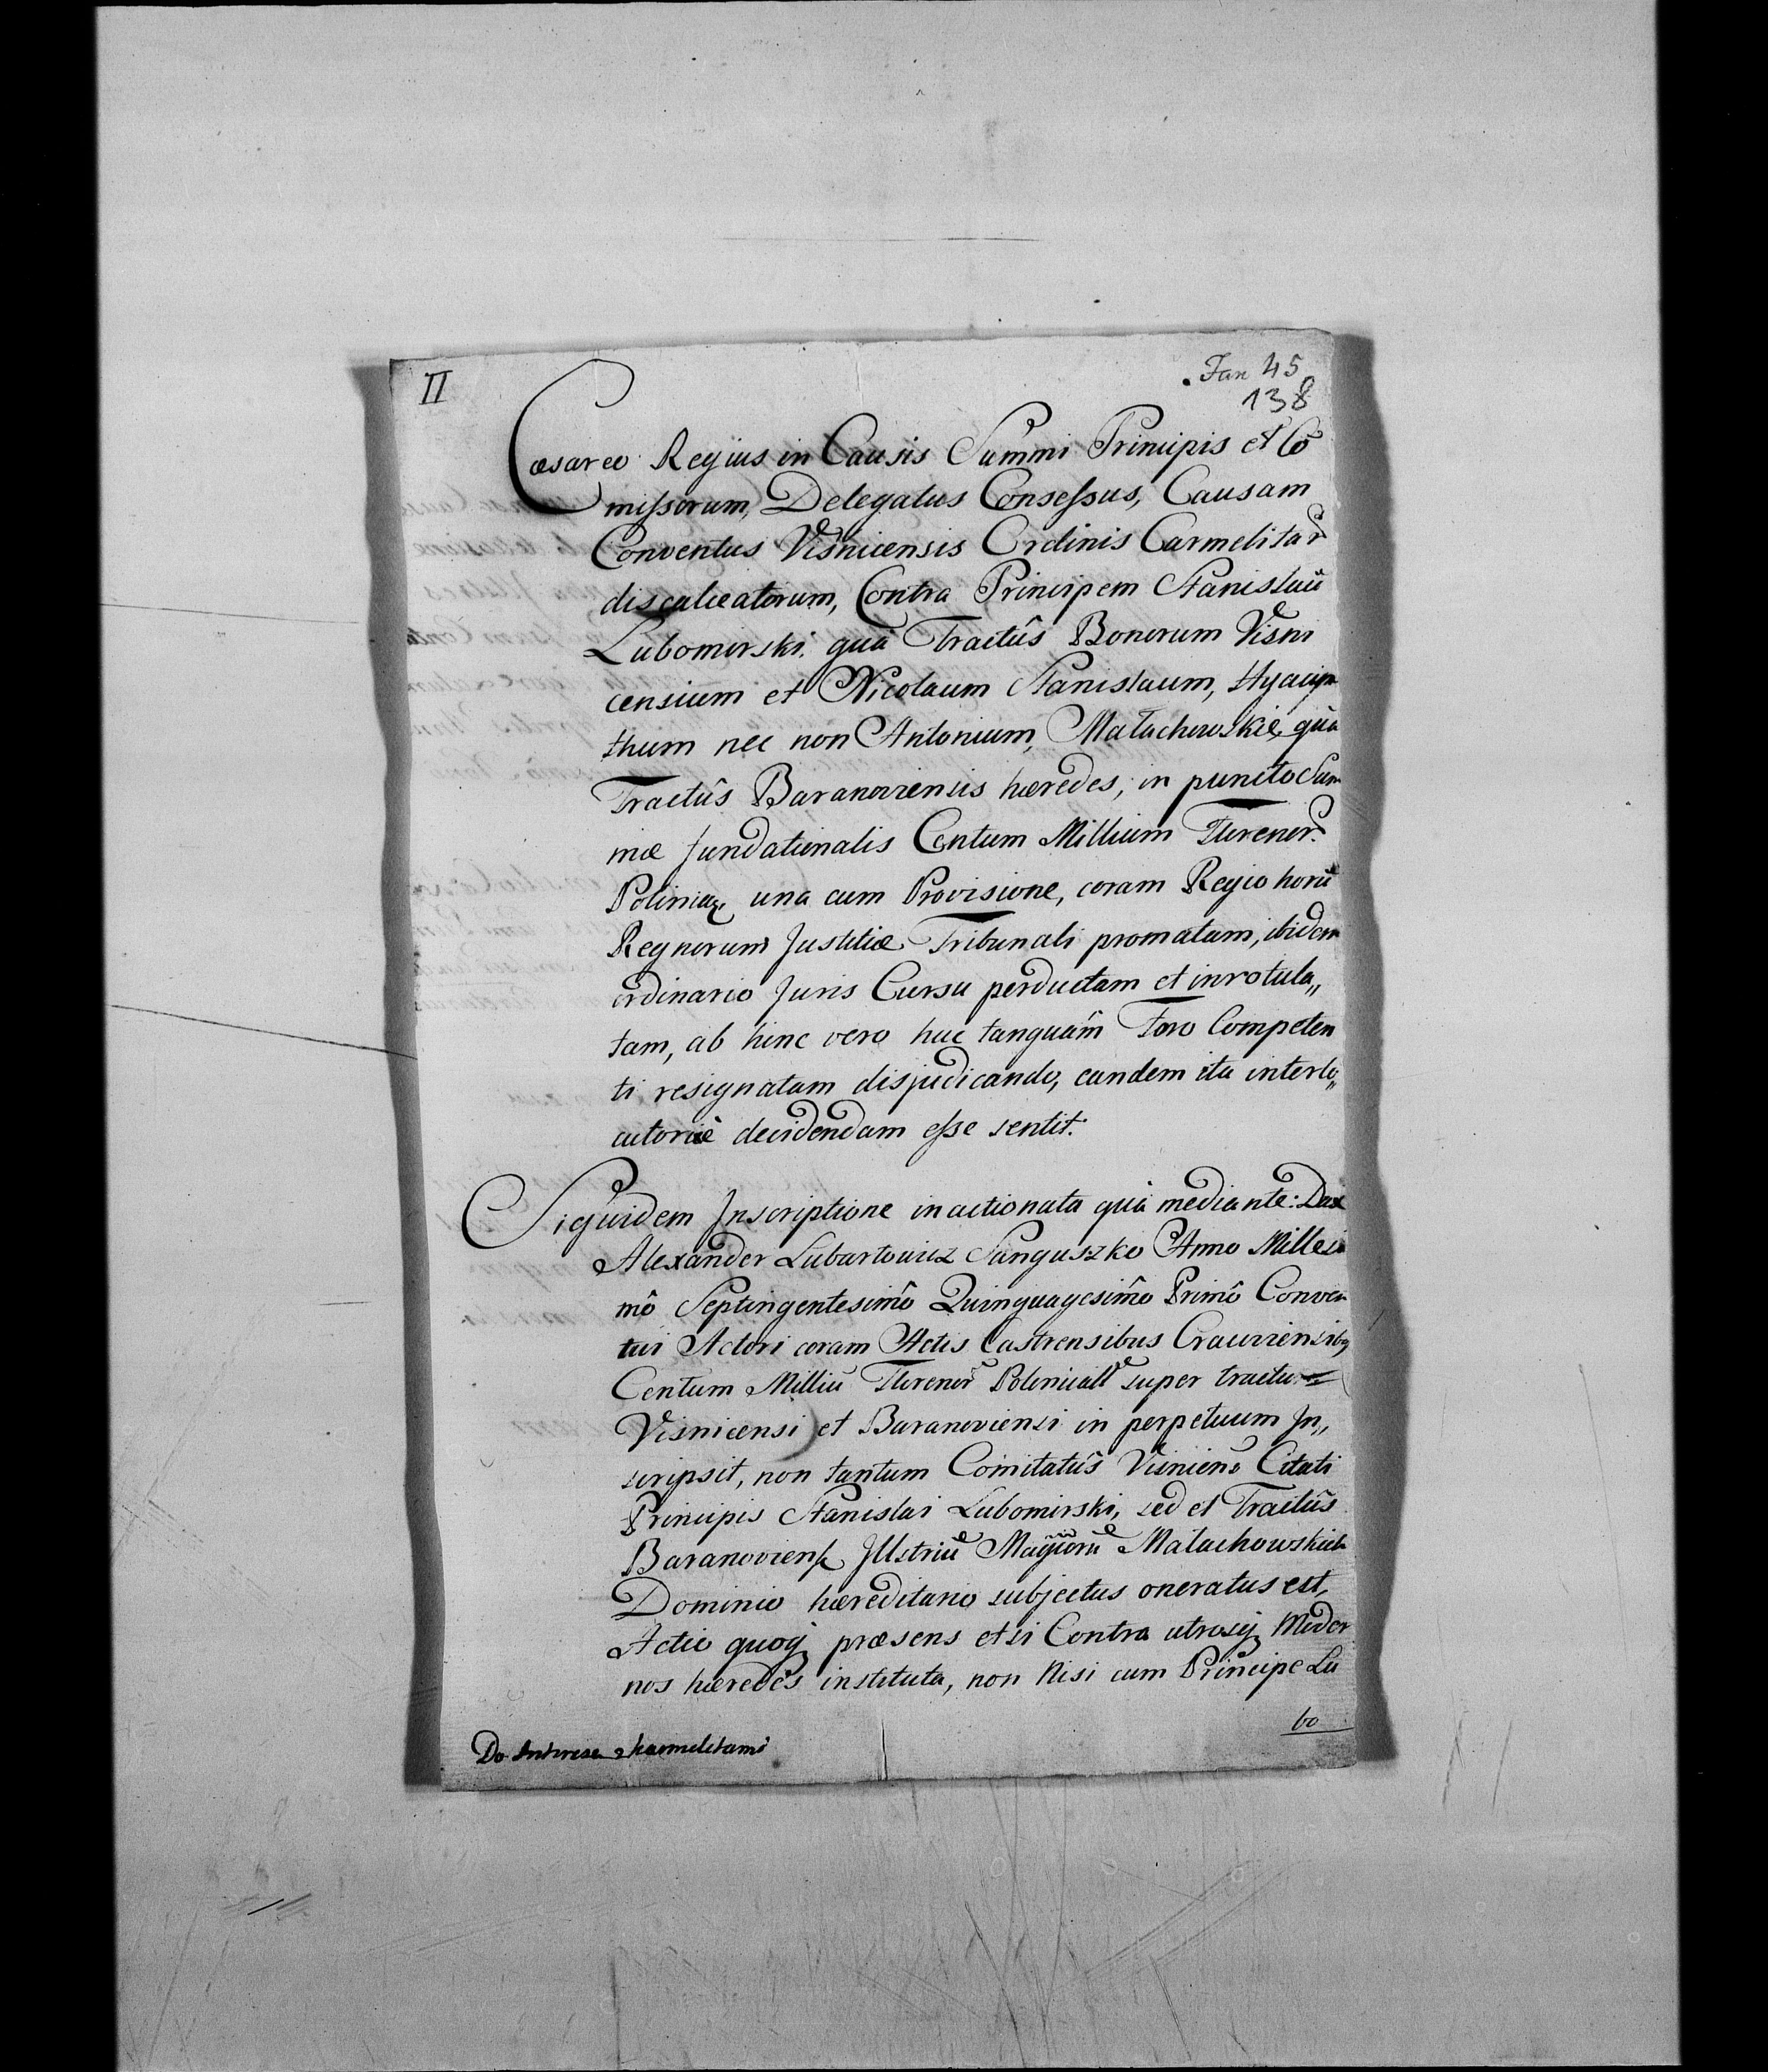 II
Fan 45
138
Cæsareo Regius in Causis Summi Principis et Co͠
missorum, Delegatus Consessus, Causam
Conventus Visnicensis Ordinis Carmelitar
discalceatorum, Contra Principem Stanislaū
Lubomirski quà Tractûs Bonorum Visni
censium et Nicolaum Stanislaum, Hyacyn
thum nec non Antonium, Małachowskie, quà
Tractûs Baranoviensis hæredes, in puncto Sum
mæ fundationalis Centum Millium Florenor
Polinicaꝵ una cum Provisione, coram Regio horū
Regnorum Justitiæ Tribunali promotam, ibidem
ordinario Juris Cursu perductam et inrotula„
tam, ab hinc vero huc tanquam Foro Competen
ti resignatam disjudicando, eandem ita interlo„
cutoriè decidendam esse sentit.
Siquidem Inscriptione inactionata quà mediante: Dux
Alexander Lubartowicz Sanguszko Anno Millesi
mô Septingentesimô Quinquagesimô Primô Conven
tui Actori coram Actis Castrensibus Cracoviensibꝫ
Centum Milliū Florenor Polinicall super tractu =
Visnicensi et Baranoviensi in perpetuum In„
scripsit, non tantum Comitatûs Visniens Citati
Principis Stanislai Lubomirski, sed et Tractûs
Baranoviens Jllstriū Magcorū Małachowskich
Dominio hæreditario subjectus oneratus est,
Actio quoqꝫ præsens etsi Contra utrosqꝫ Moder
nos hæredes instituta, non Nisi cum Principe Lu
bo
Do Interesu z karmelitami